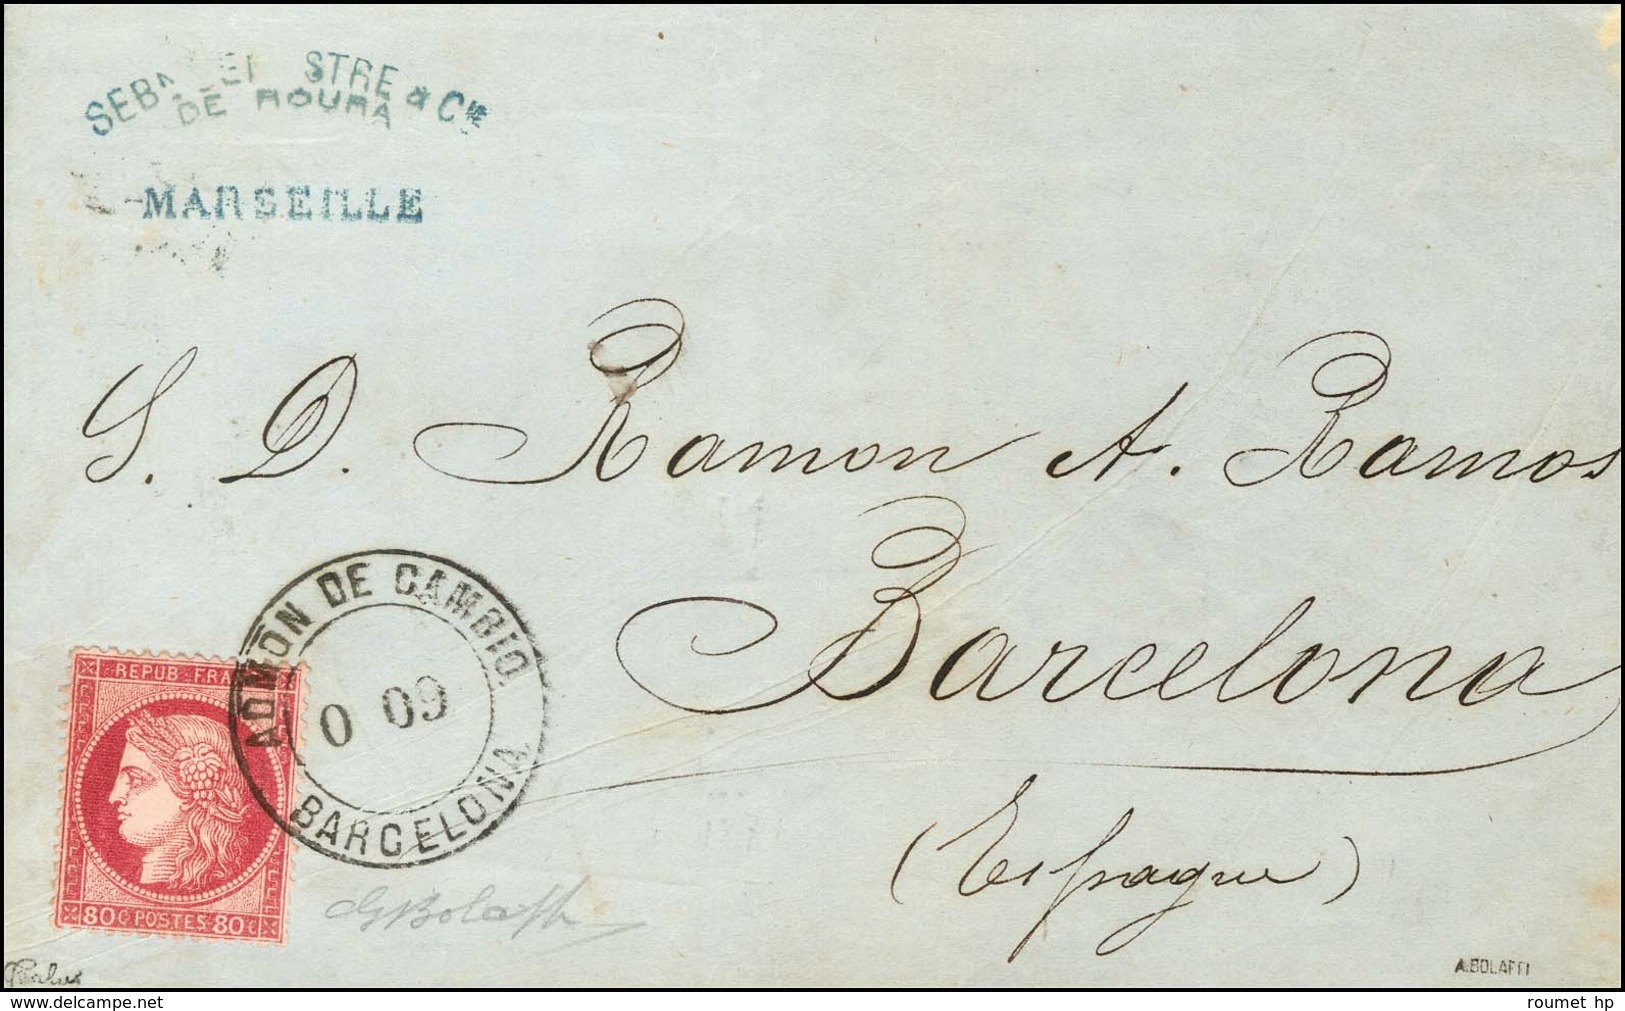 STRE & Cie
DE ROURA
MARSEILLE
S. D. Ramon A. Ramos
Barcelona
(Espagne)
ADMÓN DE CAMBIO
0 09
BARCELONA
REPUB. FRA
80 C POSTES 80 C
A.BOLAFFI
www.delcampe.net
roumet hp